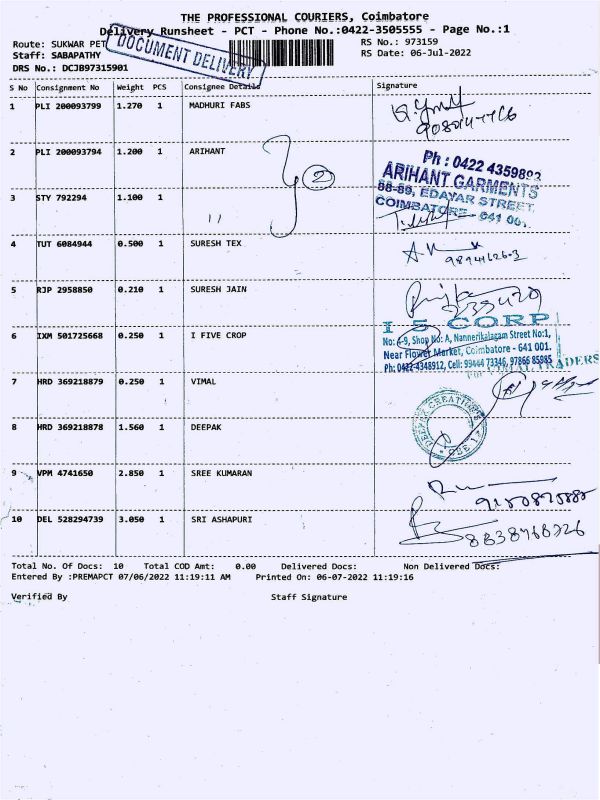 THE PROFESSIONAL COURIERS, Coimbatore
Delivery Runsheet - PCT - Phone No.:0422-3505555 - Page No.:1
Route: SUKWAR PET
RS No.: 973159
DOCUMENT DELIVERY
Staff: SABAPATHY
RS Date: 06-Jul-2022
DRS No.: DCJB97315901
S No Consignment No Weight PCS Consignee Details Signature
1 PLI 200093799 1.270 1 MADHURI FABS
2 PLI 200093794 1.200 1 ARIHANT
2
Ph : 0422 4359892
ARIHANT GARMENTS
88-89, EDAYAR STREET,
COIMBATORE - 641 001.
3 STY 792294 1.100 1
4 TUT 6084944 0.500 1 SURESH TEX
5 RJP 2958850 0.210 1 SURESH JAIN
6 IXM 501725668 0.250 1 I FIVE CROP
I 5 CORP
Shop No: A, Nannerikalagam Street No:1,
Near Flower Market, Coimbatore - 641 001.
Ph: 0422-4348912, Cell: 99444 73346, 97866 85985
7 HRD 369218879 0.250 1 VIMAL
TRADERS
8 HRD 369218878 1.560 1 DEEPAK
DEEPAK CREATIONS
9 VPM 4741650 2.850 1 SREE KUMARAN
10 DEL 528294739 3.050 1 SRI ASHAPURI
8838768326
Total No. Of Docs: 10 Total COD Amt: 0.00 Delivered Docs: Non Delivered Docs:
Entered By :PREMAPCT 07/06/2022 11:19:11 AM Printed On: 06-07-2022 11:19:16
Verified By Staff Signature